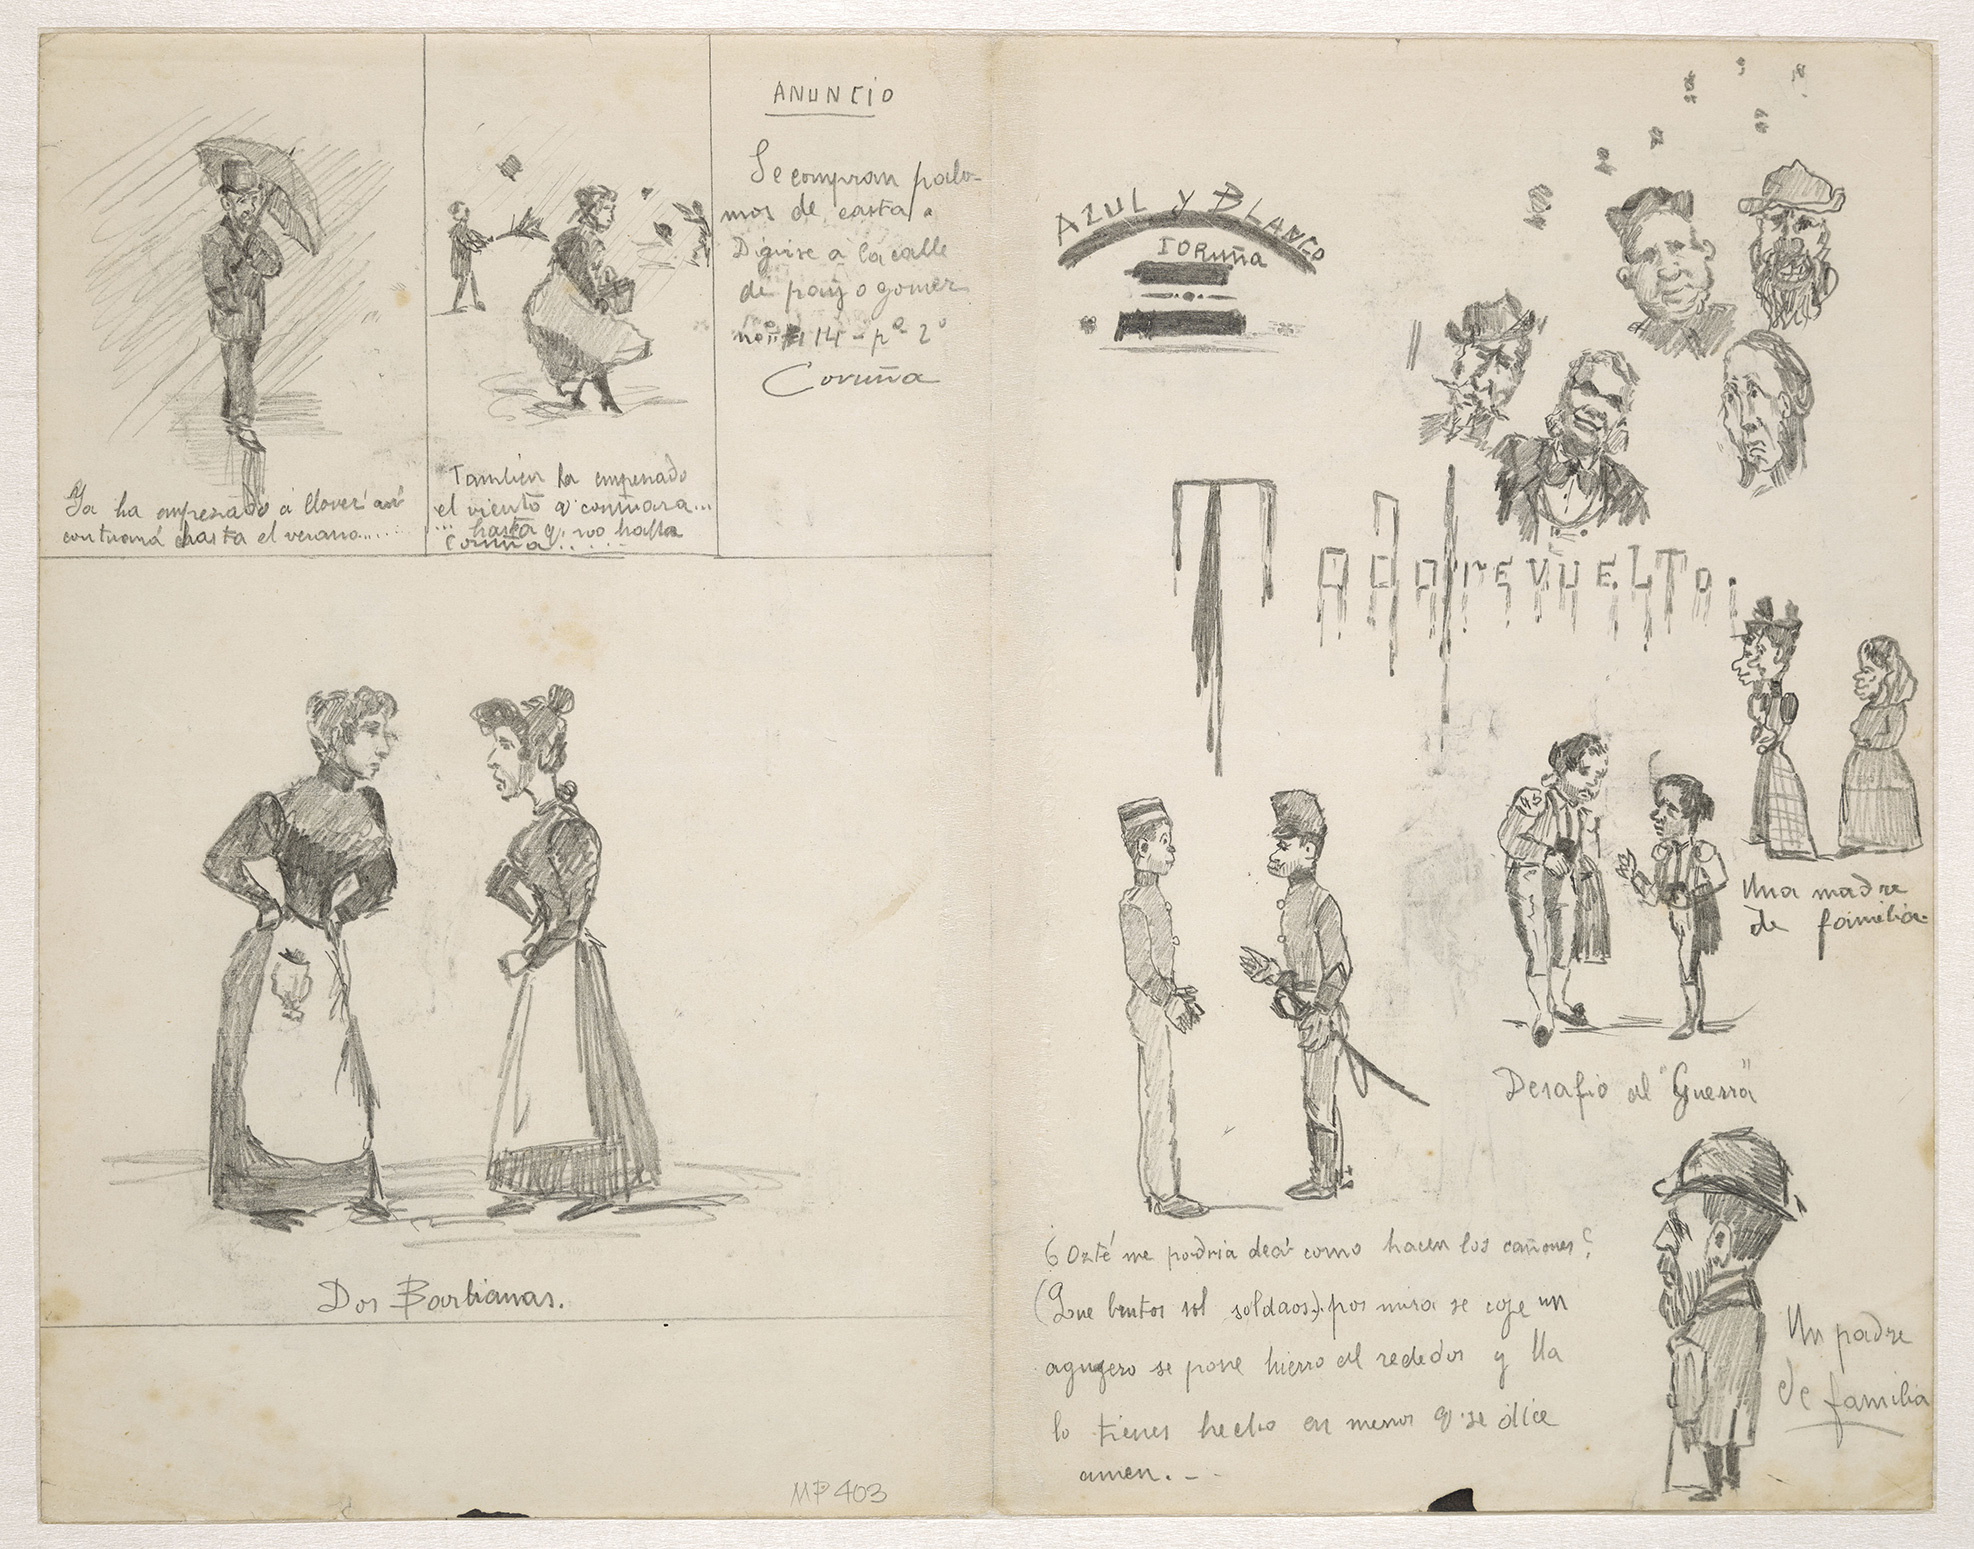 Ya ha empezado á llover así
contnuará hasta el verano......
Tambien ha empenado
el viento q' contnuara...
... hasta q. no halla
Coruña.......
ANUNCIO
Se compran palo-
mos de casta.
Digirse a la calle
de payo gomez
14 - pº 2º
Coruña
Dos Barbianas.
MP 403
AZUL y BLANCO
CORuña
TODO rEVUELTO.
Una madre
de familia.
Desafio al "Guerra"
¿Ozté me podria deciʼ como hacen los cañones?
(Que brutos sol soldaos). pos mira se coje un
agugero se pone hierro al rededor y lla
lo tienes hecho en menos q' se dice
amen. - -
Un padre
de familia